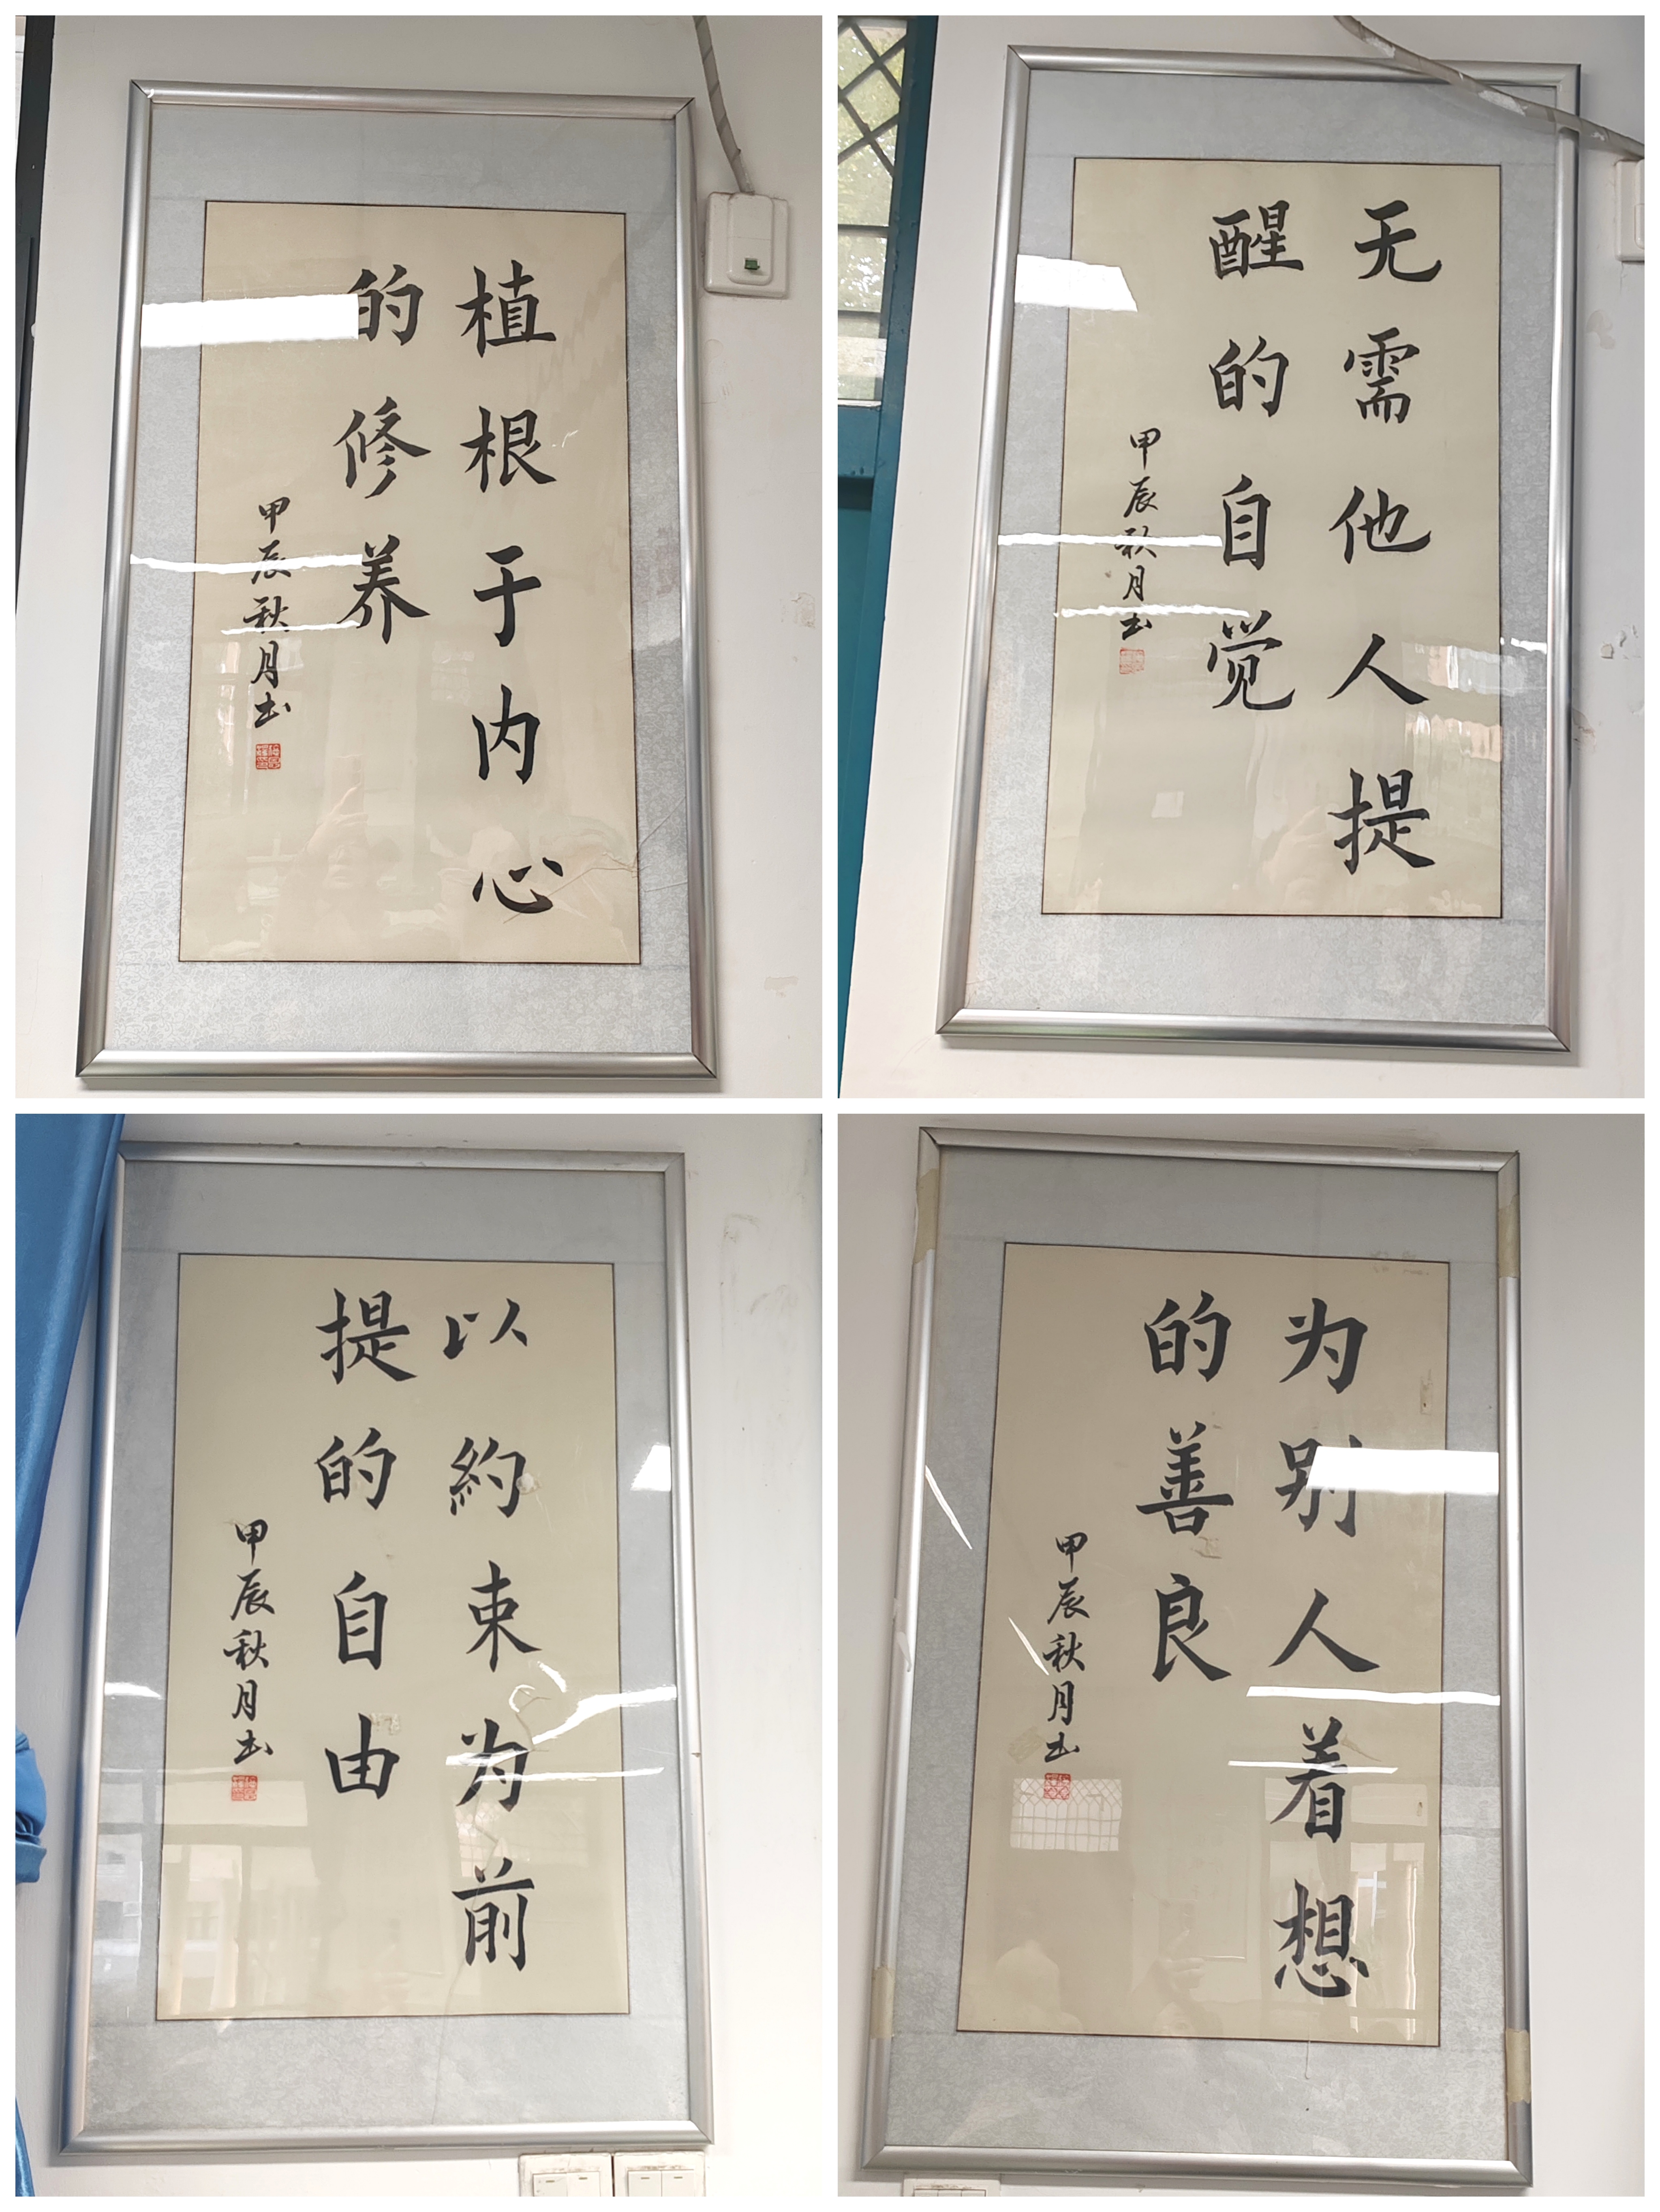 植根于内心
的修养
甲辰秋月书
无需他人提
醒的自觉
甲辰秋月书
以約束为前
提的自由
甲辰秋月书
为别人着想
的善良
甲辰秋月书